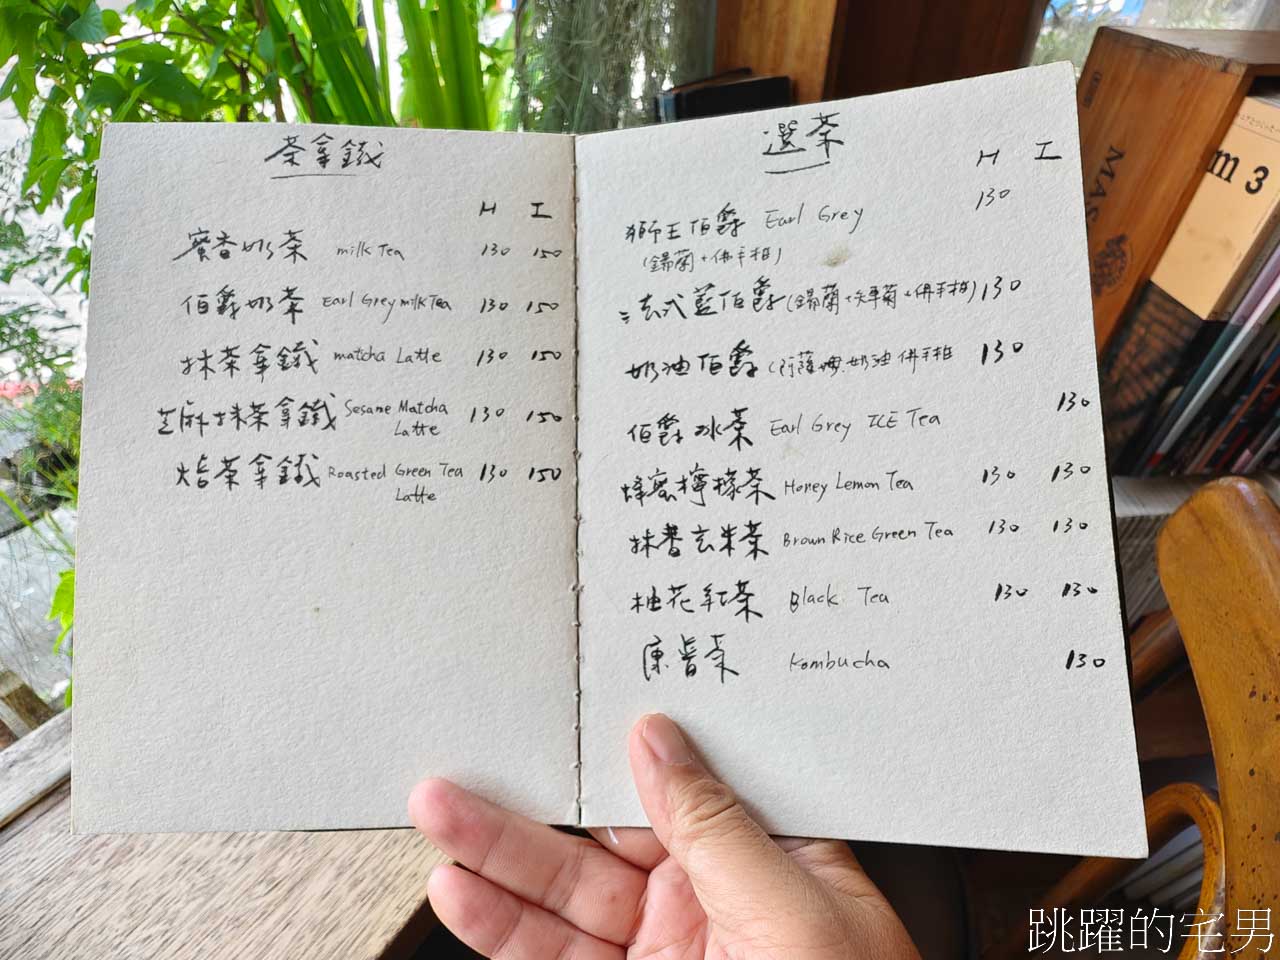 茶拿鐵
H I
蜜香奶茶 milk Tea 130 150
伯爵奶茶 Earl Grey milk Tea 130 150
抹茶拿鐵 matcha Latte 130 150
芝麻抹茶拿鐵 Sesame Matcha Latte 130 150
焙茶拿鐵 Roasted Green Tea Latte 130 150
選茶
H I
獅王伯爵 Earl Grey 130
(錫蘭+佛手柑)
法式藍伯爵 (錫蘭+矢車菊+佛手柑) 130
奶油伯爵 (阿薩姆.奶油 佛手柑 130
伯爵冰茶 Earl Grey ICE Tea 130
蜂蜜檸檬茶 Honey Lemon Tea 130 130
抹香玄米茶 Brown Rice Green Tea 130 130
柚花紅茶 Black Tea 130 130
康普茶 Kombucha 130
MAS
m 3
跳躍的宅男